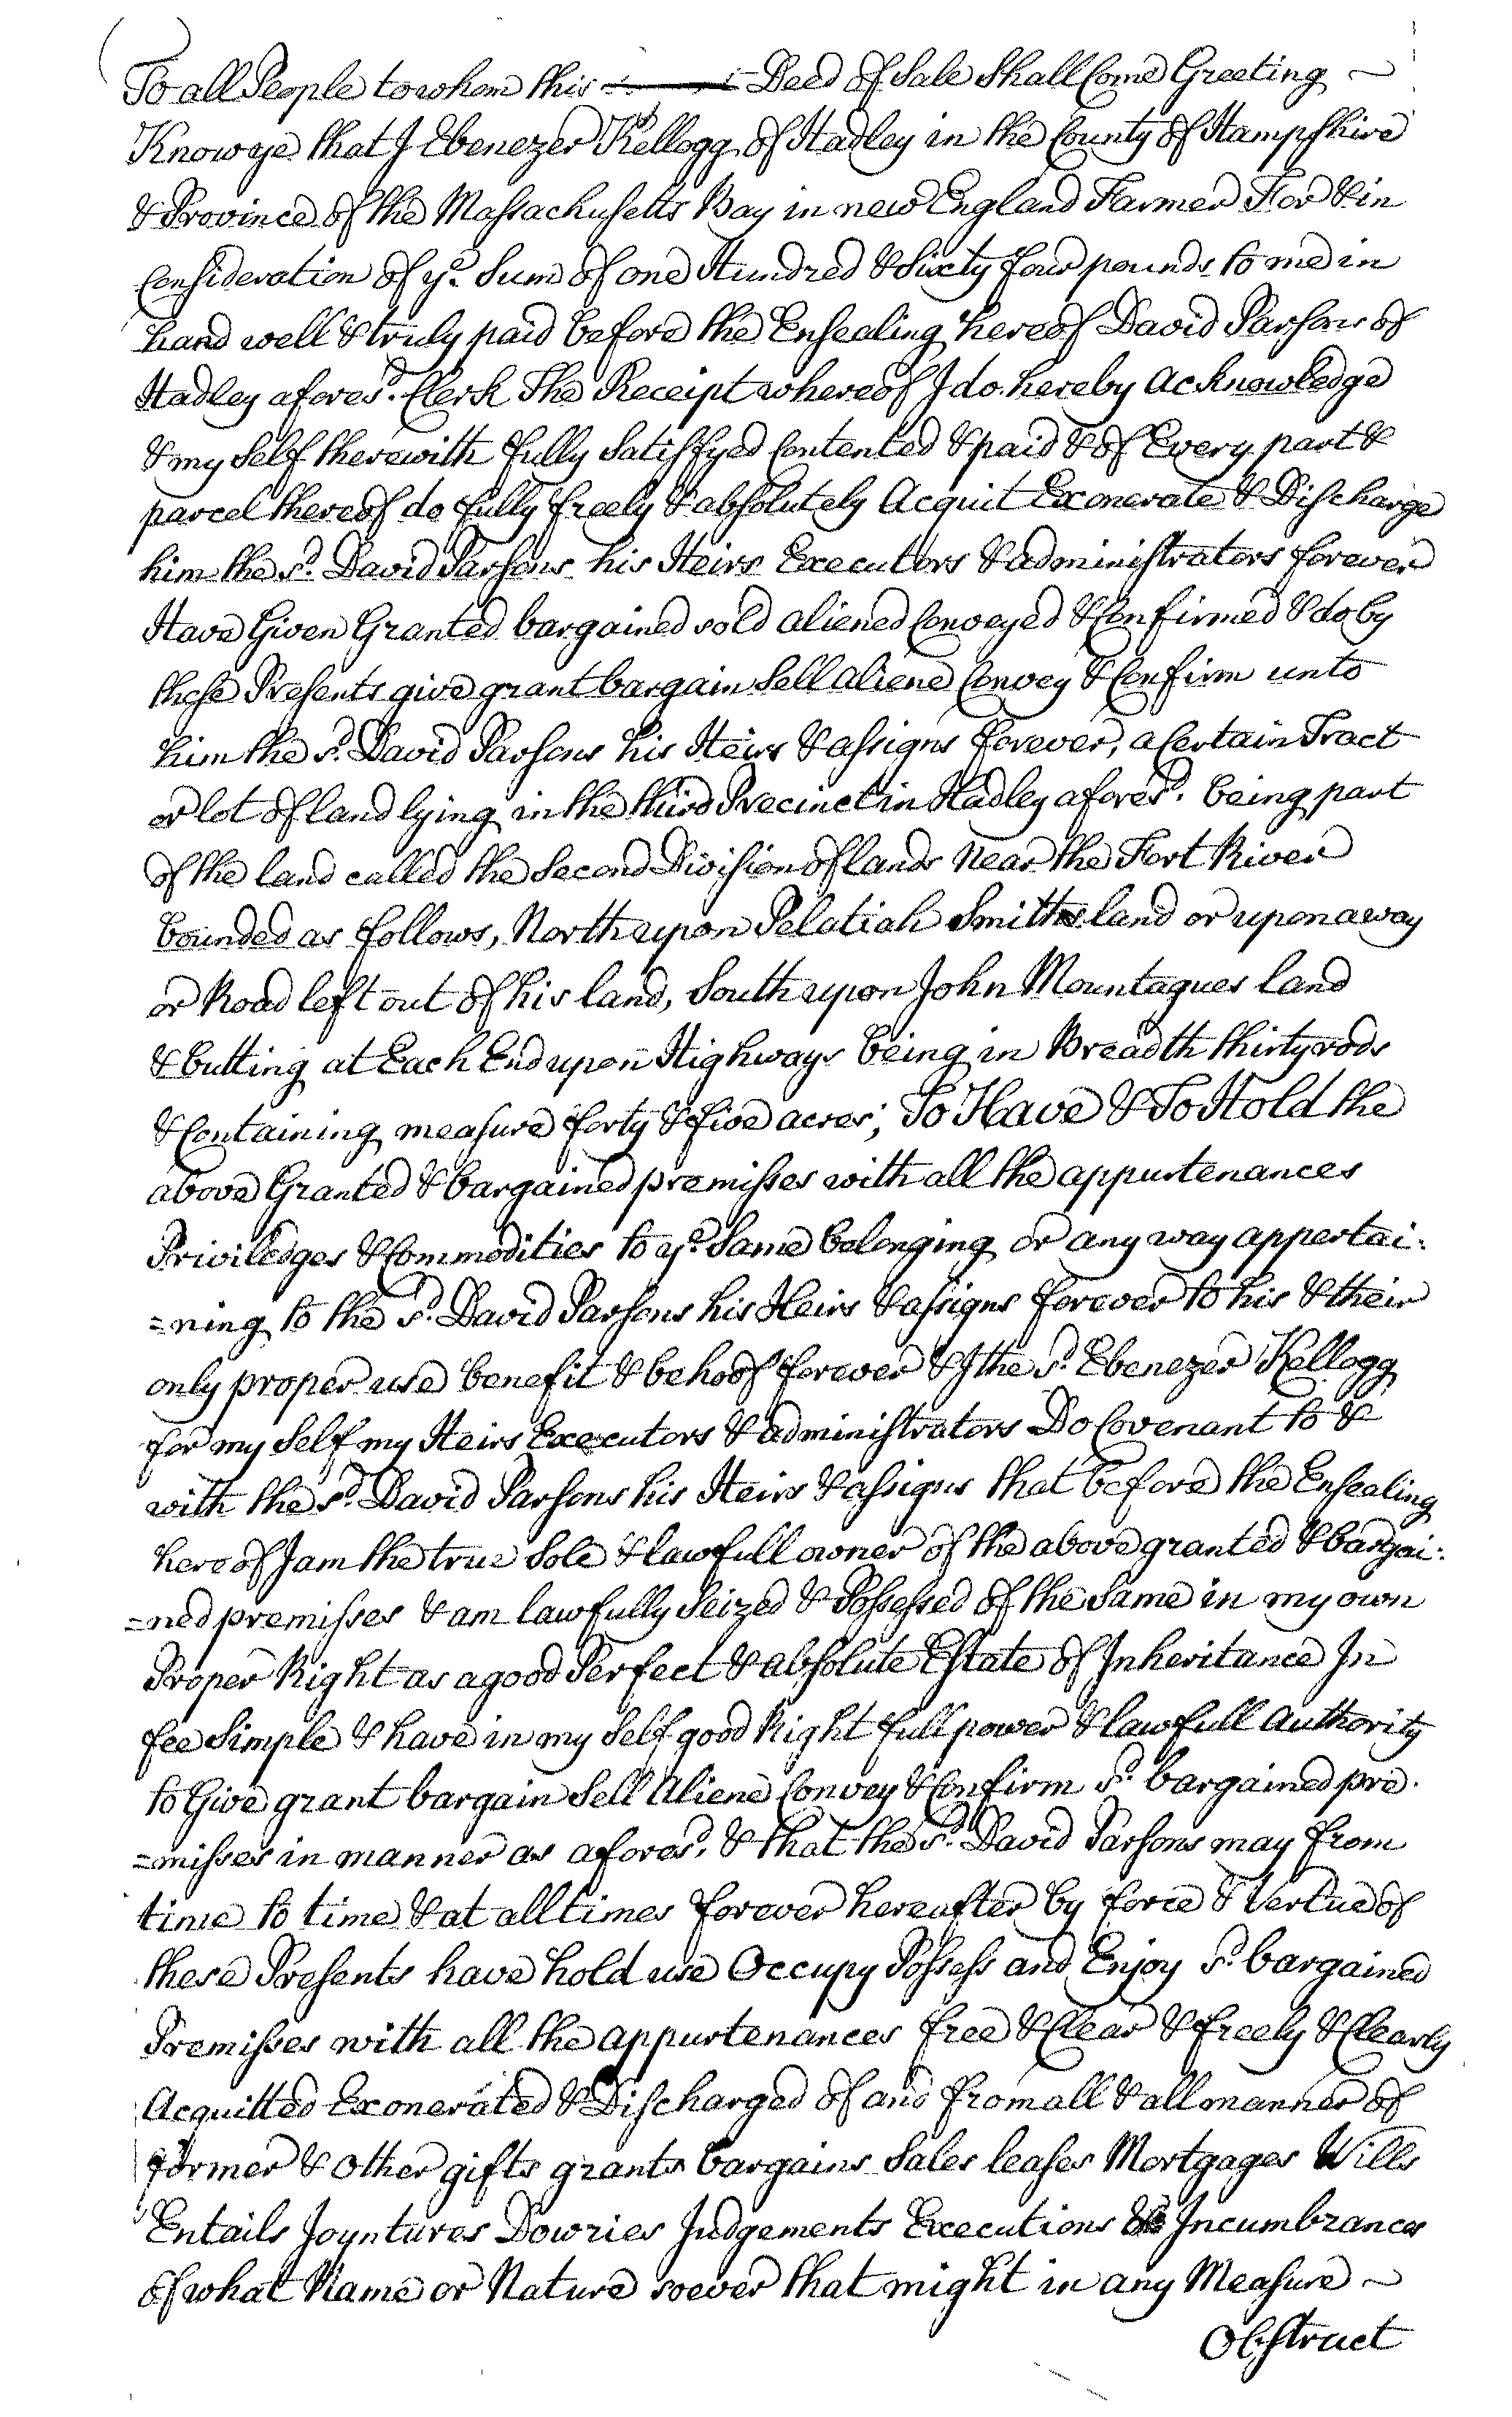 To all People to whom this Deed of Sale Shall Come Greeting
Know ye that I Ebenezer Kellogg of Hadley in the County of Hampshire
& Province of the Massachusetts Bay in new England Farmer For & in
Consideration of yᵉ Sum of one Hundred & Sixty four pounds to me in
hand well & truly paid before the Ensealing hereof David Parsons of
Hadley aforesᵈ. Clerk The Receipt whereof I do hereby Acknowledge
& my Self therewith fully Satisfyed Contented & paid & of Every part &
parcel thereof do fully freely & absolutely Acquit Exonerate & Discharge
him the sᵈ. David Parsons his Heirs Executors & administrators forever
Have Given Granted bargained sold aliened Conveyed & Confirmed & do by
these Presents give grant bargain Sell aliene Convey & Confirm unto
him the sᵈ. David Parsons his Heirs & assigns forever, a Certain Tract
or lot of land lying in the third Precinct in Hadley aforesᵈ. being part
of the land called the Second Division of lands Near the Fort River
bounded as follows, North upon Pelatiah Smiths land or upon a way
or Road left out of his land, South upon John Mountagues land
& butting at Each End upon Highways being in Breadth thirty rods
& Containing measure forty & five acres; To Have & To Hold the
above Granted & bargained premisses with all the appurtenances
Priviledges & Commodities to yᵉ Same belonging or any way appertai:
=ning to the sᵈ. David Parsons his Heirs & assigns forever to his & their
only proper use benefit & behoof forever & I the sᵈ. Ebenezer Kellogg
for my Self my Heirs Executors & administrators Do Covenant to &
with the sᵈ. David Parsons his Heirs & assigns that before the Ensealing
hereof I am the true Sole & lawfull owner of the above granted & bargai:
=ned premisses & am lawfully Seized & Possessed of the Same in my own
Proper Right as a good Perfect & absolute Estate of Inheritance In
fee Simple & have in my Self good Right full power & lawfull Authority
to Give grant bargain Sell Aliene Convey & Confirm sᵈ. bargained pre.
=misses in manner as aforesᵈ. & that the sᵈ. David Parsons may from
time to time & at all times forever hereafter by force & Vertue of
these Presents have hold use Occupy Possess and Enjoy sᵈ. bargained
Premisses with all the appurtenances free & Clear & freely & Clearly
Acquitted Exonerated & Discharged of and from all & all manner of
former & Other gifts grants bargains Sales leases Mortgages Wills
Entails Joyntures Dowries Judgements Executions & Incumbrances
of what Name or Nature soever that might in any Measure
Obstruct